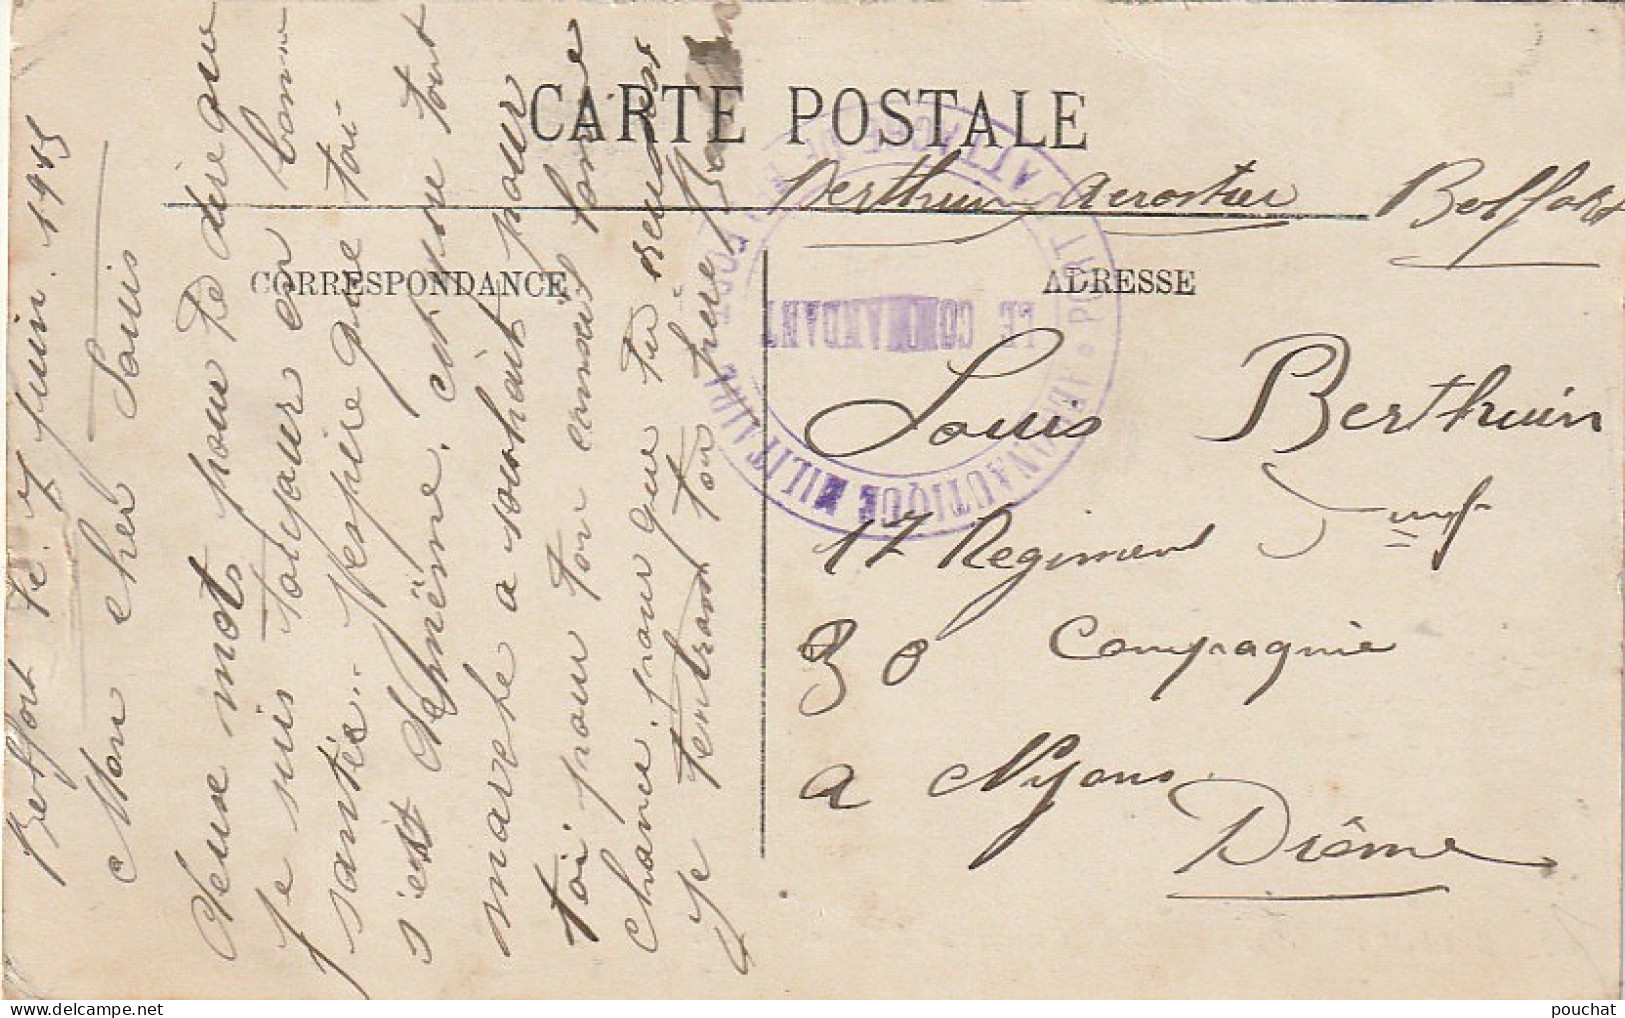 CARTE POSTALE
Berthuin Aerostier Belfort
CORRESPONDANCE
ADRESSE
Belfort le 7 juin. 1915
Mon cher Louis
deux mots pour te dire que
je suis toujour en bonne
santée.. j'espire que toi
s'est de mïème. ici pour tout
marche a souhait pour
toi pour ton conseil bonne
chance. pour que tu
je ton frère
Louis Berthuin
17 Regiment
30 Compagnie
a Nyons
Drôme
AERONAUTIQUE MILITAIRE
PORT D'ATTACHE
LE COMMANDANT
pouchat